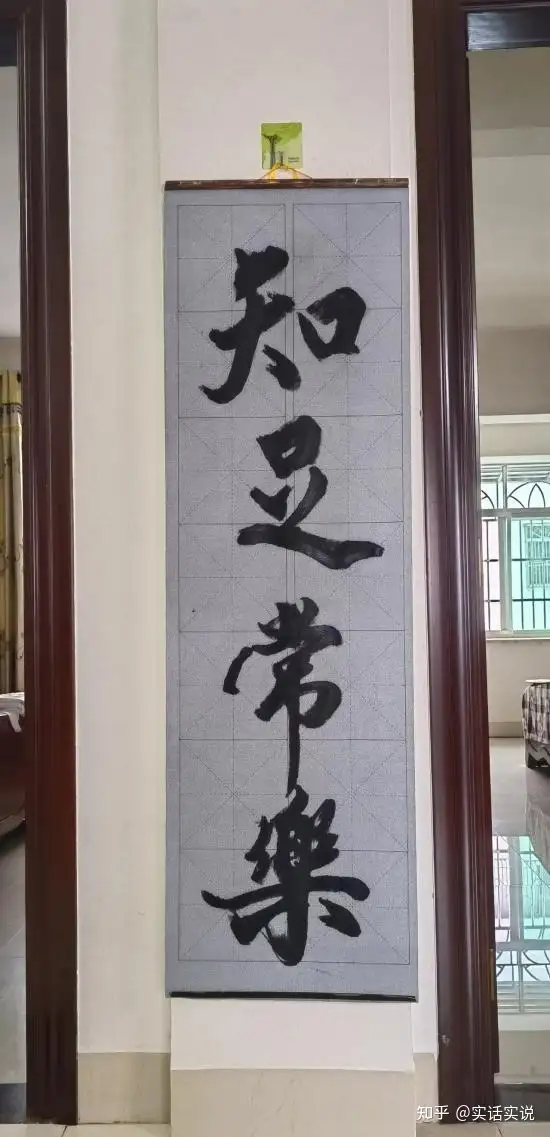 知足常樂
知乎 @实话实说